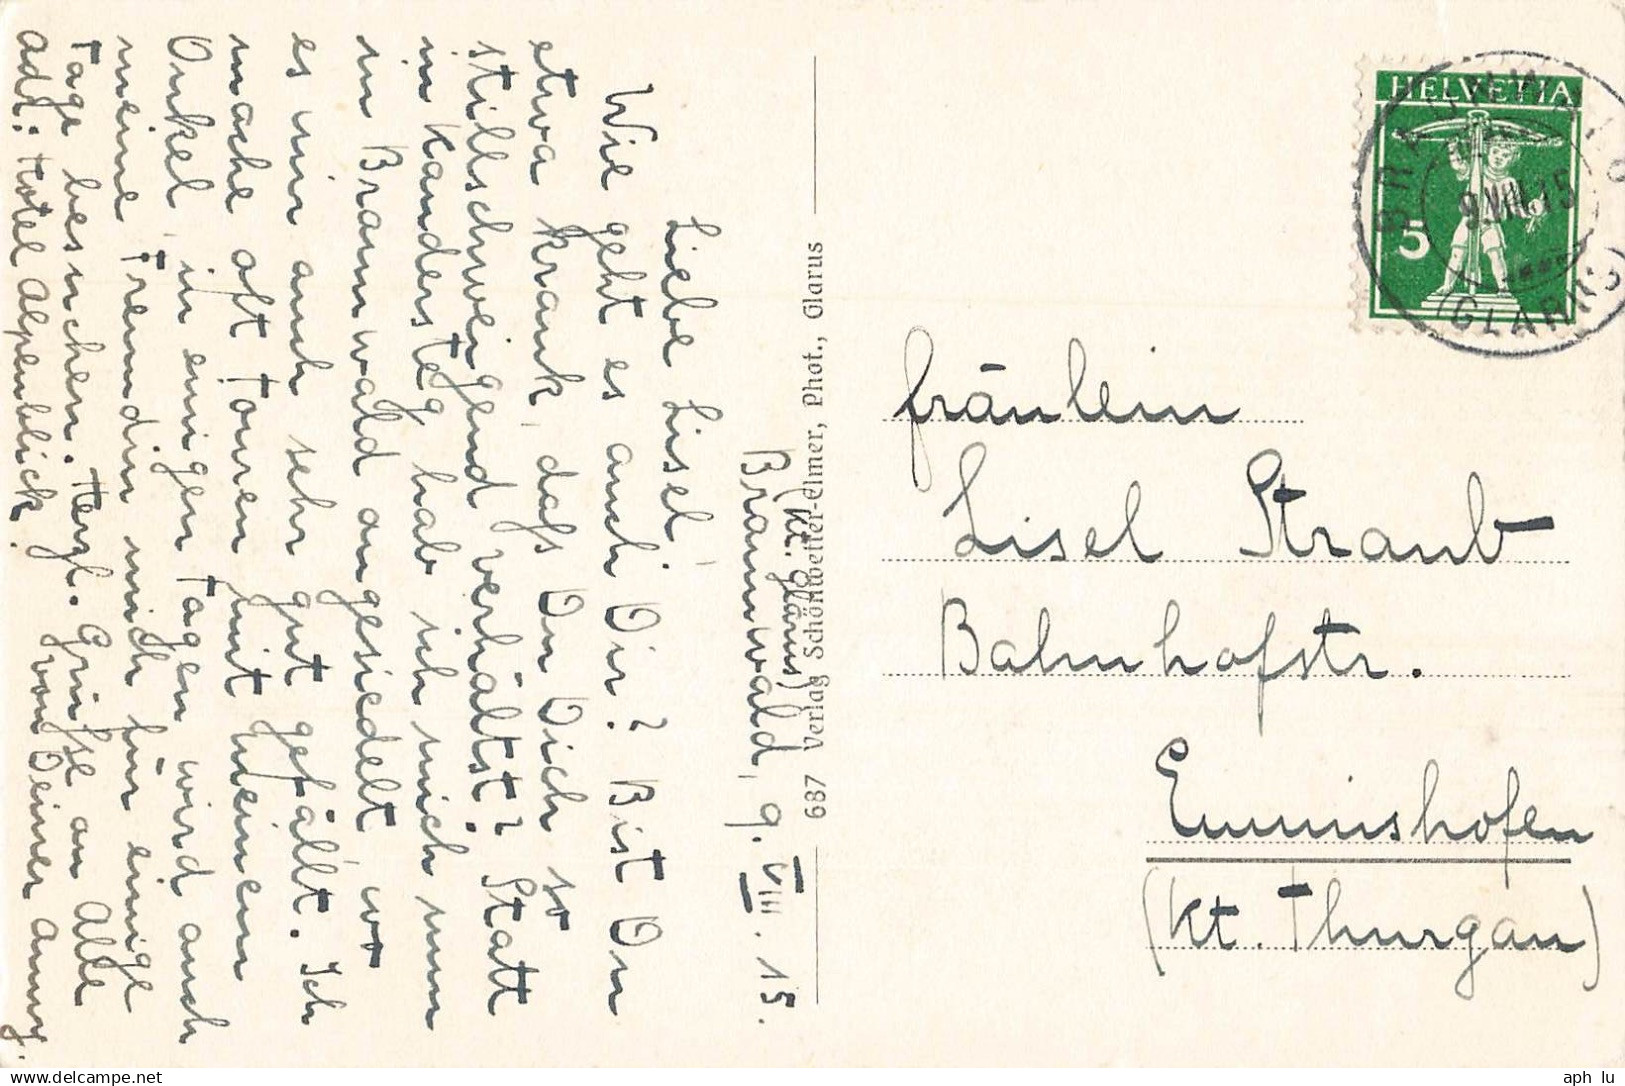 Braunwald, 9. VIII. 15.
(Kt. Glarus)
Liebe Lisel,
Wie geht es auch Dir? Bist Du
etwa krank, dass Du Dich so
stillschweigend verhältst? Statt
in Kandersteg hab ich mich nun
in Braunwald angesiedelt, wo
es mir auch sehr gut gefällt. Ich
mache oft Touren mit meinem
Onkel, in einigen Tagen wird auch
meine Freundin mich für einige
Tage besuchen. Herzl. Grüsse an Alle
von Deiner Anny.
Adr: Hotel Alpenblick.
687 Verlag Schönwetter-Elmer, Phot., Glarus
HELVETIA
5
BRAUNWALD
9.VIII.15
(GLARUS)
Fräulein
Lisel Straub
Bahnhofstr.
Emmishofen
(Kt. Thurgau)
aph_lu